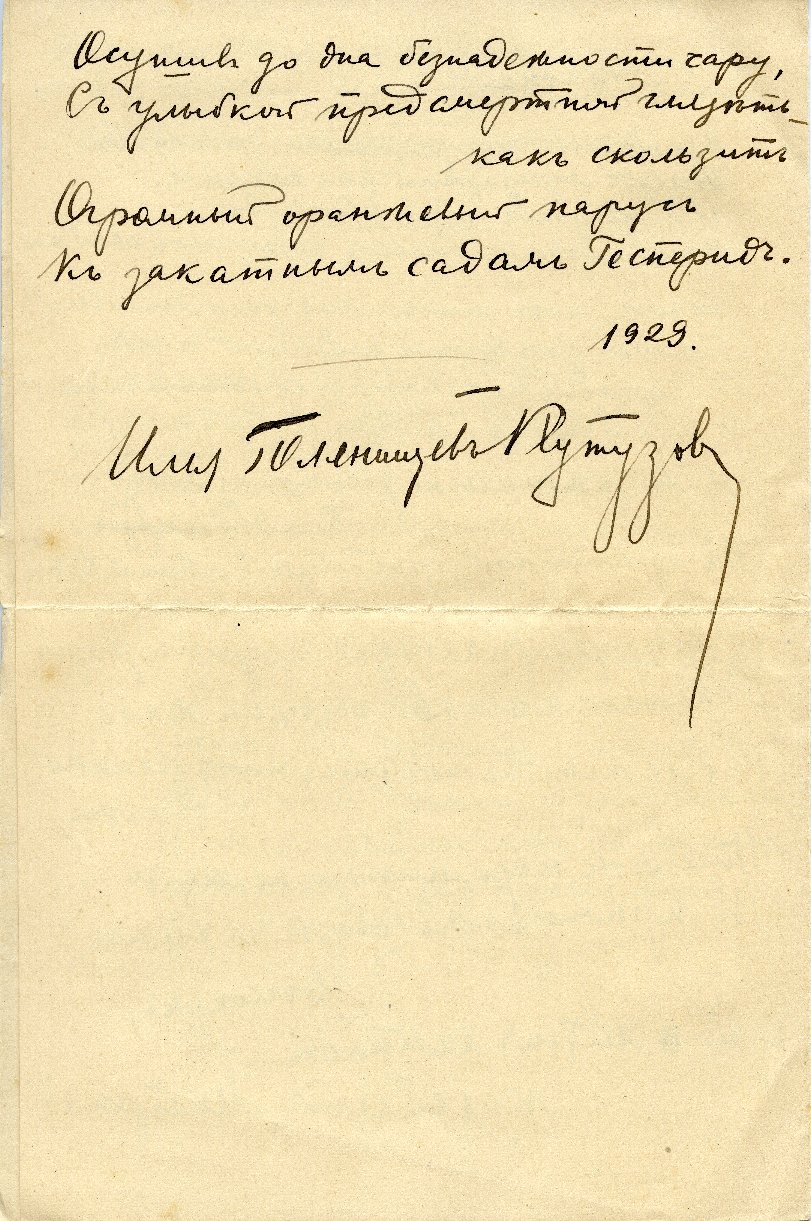 Осушивъ до дна безнадежности чару,
Съ улыбкой предсмертной глядѣть –
какъ скользитъ
Огромный оранжевый парусъ
Къ закатнымъ садамъ Гесперидъ.
1929.
Илья Голенищевъ Кутузов